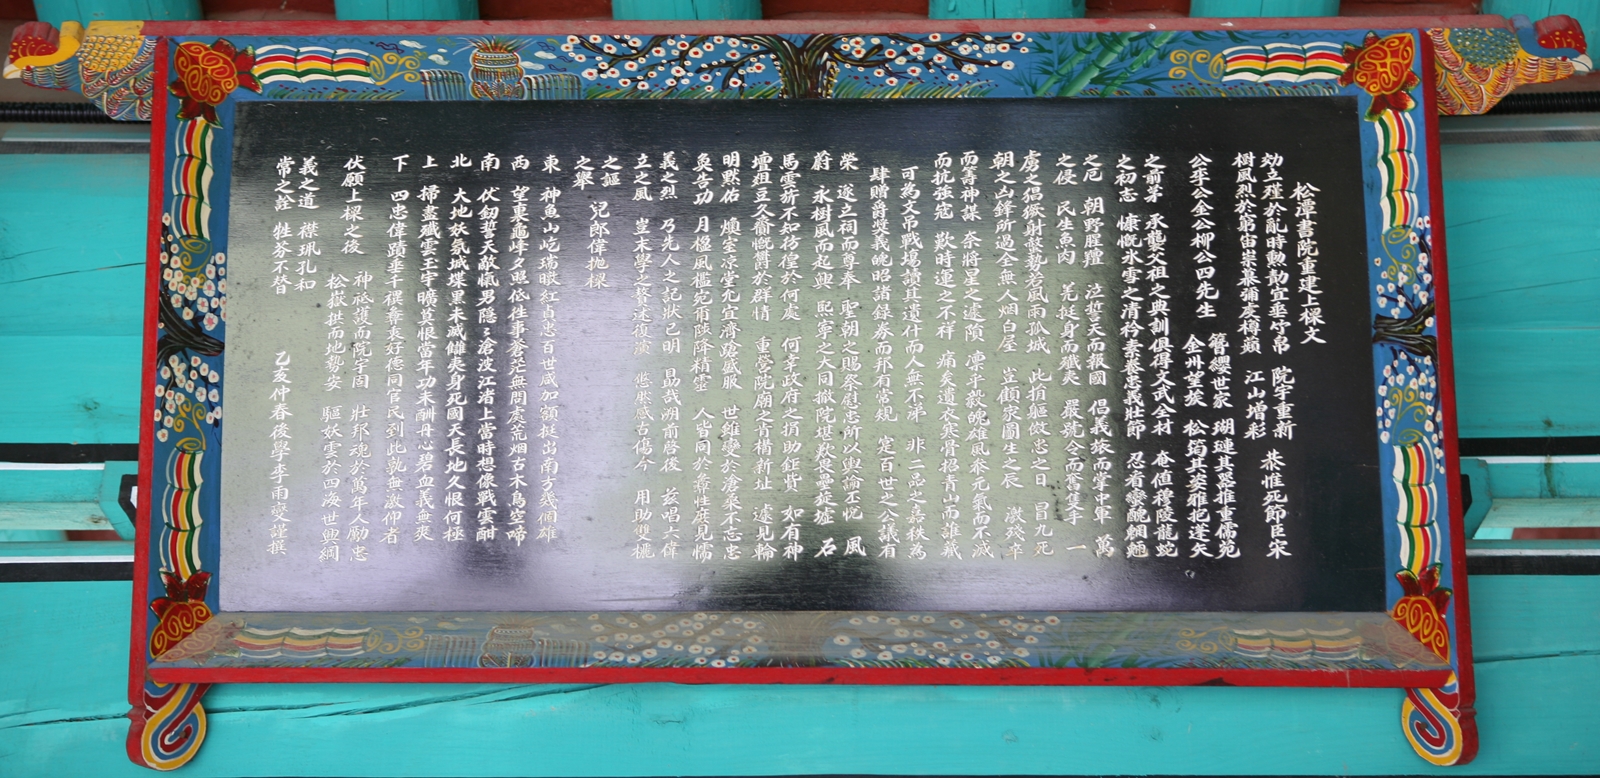 松潭書院重建上樑文
効立殣於亂時勲勣宜垂竹帛 院宇重新 恭惟死節臣宋
樹風烈於窮宙崇慕彌虔樽蘋 江山增彩
公宋公金公柳公四先生 簪纓世家 瑚璉其器推重儒苑
金州望族 松筠其姿雅抱蓬矢
之前茅 承襲父祖之典訓俱得文武全材 奄値穆陵龍蛇
之初志 慷慨氷雪之清衿素養忠義壯節 忍看蠻醜魍魎
之厄 朝野腥羶 泣誓天而報國 倡義旅而掌中軍 萬
之侵 民生魚肉 挺身而殲夷 嚴號令而奮隻手 一
虜之猖獗射鼓勢若風雨孤城 此捐軀倣忠之日 冒九死
朝之凶鋒所過全無人烟白屋 豈顧家圖生之辰 激殘卒
而籌神謀 奈將星之遽隕 凛乎毅魄雄風叅元氣而不滅
而抗強寇 歎時運之不祥 痛矣遺衣寒骨招青山而誰藏
可為文吊戰場讀其遺什而人無不涕 非二品之嘉秩為
肆贈爵奬義魄昭諸錄券而邦有常規 寔百世之公議有
榮 遂立祠而尊奉 聖朝之賜祭慰忠所以輿論丕悅 風
蔚 永樹風而起興 熙寧之大同撤院堪歎畏壘旋墟 石
馬雲旂不知彷徨於何處 何幸政府之捐助鉅貲 如有神
壇俎豆久齋慨欝於群情 重營院廟之肯構新址 遽見輪
明黙佑 燠室凉堂尤宜濟蹌葴服 世雖變於滄桑不忘忠
奐告功 月楹風檻宛甭陟降精靈 人皆同於彛性庶見懦
義之烈 乃先人之記狀已明 昜哉朔前啓後 玆唱六偉
立之風 豈末學之贅述復演 愴感古傷今 用助雙樇
之謳
之舉 兒郎偉抛樑
東 神魚山屹瑞暾紅貞忠百世咸加額挺出南方幾個雄
西 望裏龜峰夕照低往事蒼茫無問處荒烟古木鳥空啼
南 伏劒誓天敵愾男隐〻滄波江渚上當時想像戰雲酣
北 大地妖氛城堞黑未滅雠夷身死國天長地久恨何極
上 掃盡殲雲玉宇曠莫恨當年功未酬丹心碧血義無爽
下 四忠偉蹟垂千禩彛衷好德同官民到此孰無激仰者
伏願上樑之後 神祗護而院宇固 壯邦魂於萬年人勵忠
松嶽拱而地勢安 驅妖雲於四海世興綱
義之道 襟珮孔和
常之詮 牲芬不替
乙亥仲春後學李雨燮謹撰